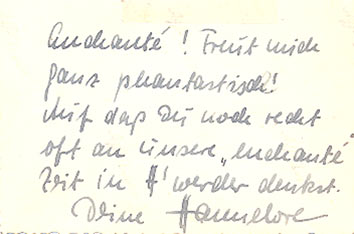 Enchanté! Freut mich
ganz phantastisch!
Auf daß Du noch recht
oft an unsere „enchanté"
Zeit in H'werder denkst.
Deine Hannelore